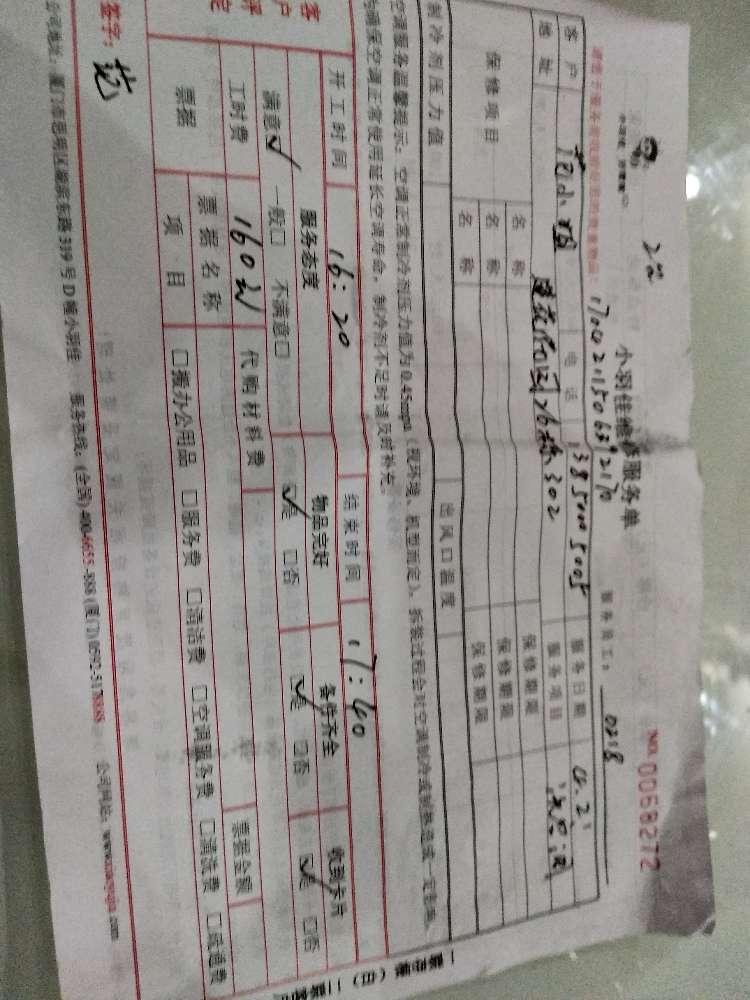 小羽佳维修服务单
No: 0068272
服务员工: 0218
1700211506392170
客户 电话 13850005005 服务日期
地址 302 服务项目
保修项目 名称 保修期限
名称 保修期限
名称 保修期限
制冷剂压力值 出风口温度
空调服务温馨提示:空调正常制冷剂压力值为0.45mpa(视环境、机型而定)。拆装过程会对空调制冷或制热造成一定影响,
为确保空调正常使用延长空调寿命,制冷剂不足时请及时补充。
开工时间 16:20 结束时间 17:40
服务态度 物品完好 备件齐全 收到卡片
满意☑ 一般□ 不满意□ ☑是 □否 ☑是 □否 ☑是 □否
工时费 160 代购材料费
票据 票据名称 票据金额
项目 □搬办公用品 □服务费 □清洁费 □空调服务费 □清洗费 □疏通费
签字: 范
公司地址:厦门市思明区湖滨东路319号D幢小羽佳 服务热线:(全国)400-6655-888(厦门)0592-5178888 公司网址:www.xiaoyujia.com